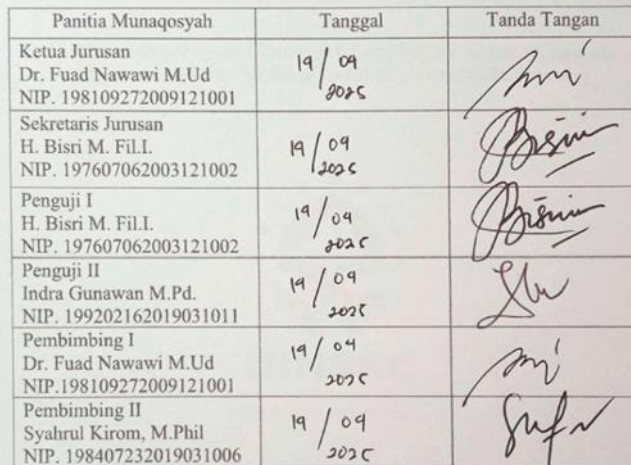 Panitia Munaqosyah Tanggal Tanda Tangan
Ketua Jurusan
Dr. Fuad Nawawi M.Ud
NIP. 198109272009121001
19/09
2025
Sekretaris Jurusan
H. Bisri M. Fil.I.
NIP. 197607062003121002
19/09
2025
Penguji I
H. Bisri M. Fil.I.
NIP. 197607062003121002
19/09
2025
Penguji II
Indra Gunawan M.Pd.
NIP. 199202162019031011
19/09
2025
Pembimbing I
Dr. Fuad Nawawi M.Ud
NIP.198109272009121001
19/09
2025
Pembimbing II
Syahrul Kirom, M.Phil
NIP. 198407232019031006
19/09
2025